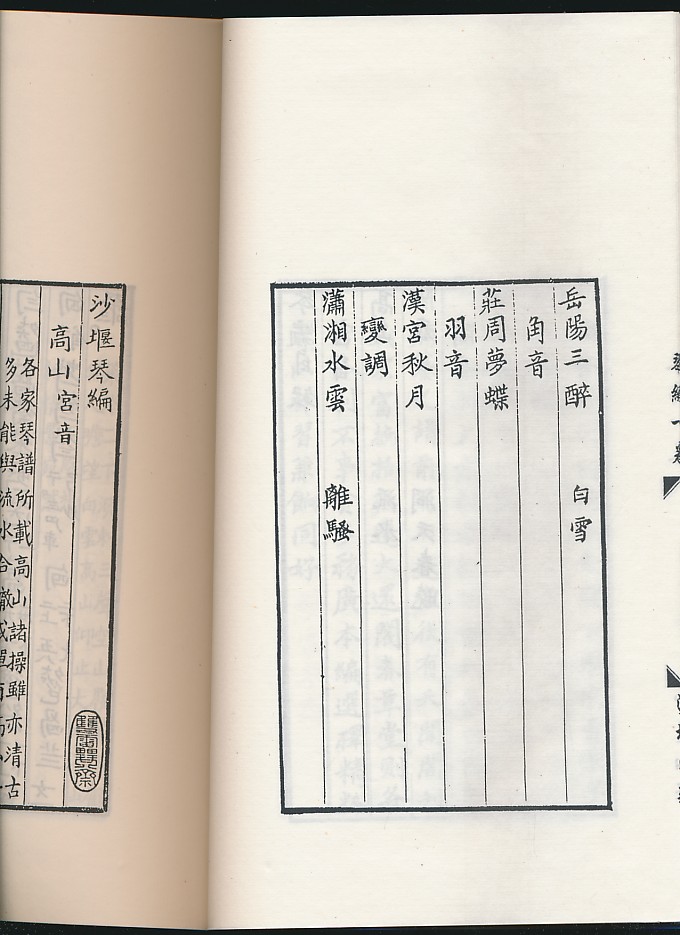 岳陽三醉 白雪
角音
莊周夢蝶
羽音
漢宮秋月
變調
瀟湘水雲 離騷
沙堰琴編
高山宮音
各家琴譜所載高山諸操雖亦清古
多未能與流水合轍或單